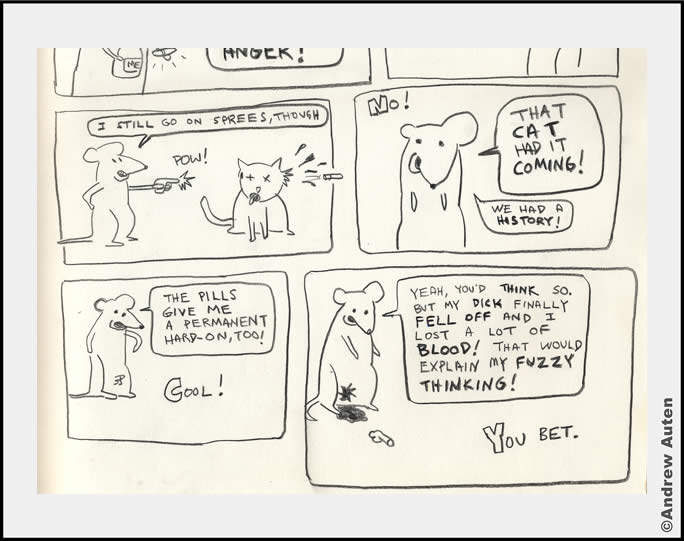 ME
ANGER!
I STILL GO ON SPREES, THOUGH
POW!
NO!
THAT
CAT
HAD IT
COMING!
WE HAD A
HISTORY!
THE PILLS
GIVE ME
A PERMANENT
HARD-ON, TOO!
COOL!
YEAH, YOU'D THINK SO.
BUT MY DICK FINALLY
FELL OFF AND I
LOST A LOT OF
BLOOD! THAT WOULD
EXPLAIN MY FUZZY
THINKING!
YOU BET.
©Andrew Auten